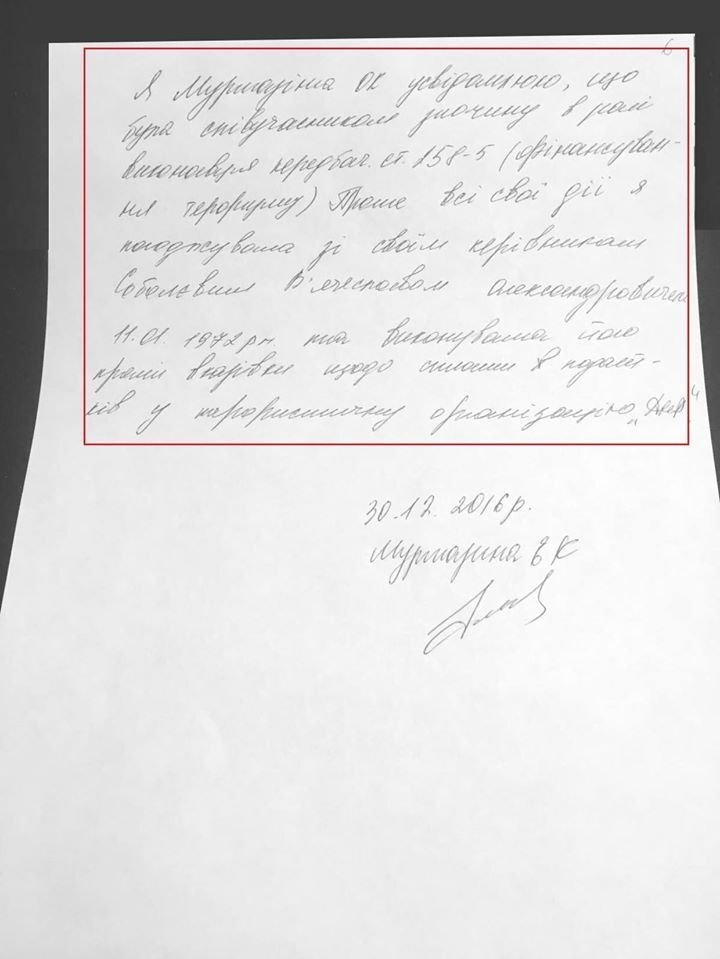 6
Я Муртазіна ОК усвідомлюю, що
була співучасником злочину в ролі
виконавця передбач. ст. 258-5 (фінансуван-
ня тероризму) Проте всі свої дії я
погоджувала зі своїм керівником
Соболєвим В'ячеславом Олександровичем
11.01.1972 р.н. та виконувала його
прямі вказівки щодо сплати податк-
ків у терористичну організацію „ДНР"
30.12.2016 р.
Муртазина Є К